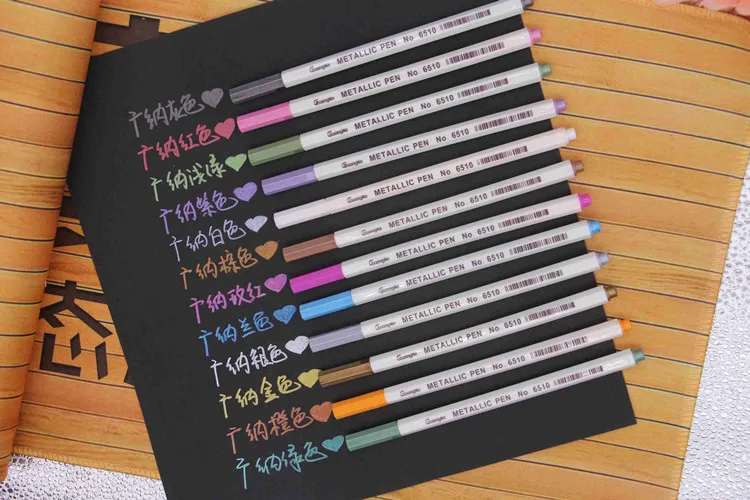 广纳灰色 Guangna METALLIC PEN No 6510
广纳红色 Guangna METALLIC PEN No 6510
广纳浅绿 Guangna METALLIC PEN No 6510
广纳紫色 Guangna METALLIC PEN No 6510
广纳白色 Guangna METALLIC PEN No 6510
广纳棕色 Guangna METALLIC PEN No 6510
广纳玫红 Guangna METALLIC PEN No 6510
广纳兰色 Guangna METALLIC PEN No 6510
广纳银色 Guangna METALLIC PEN No 6510
广纳金色 Guangna METALLIC PEN No 6510
广纳橙色 Guangna METALLIC PEN No 6510
广纳绿色 Guangna METALLIC PEN No 6510